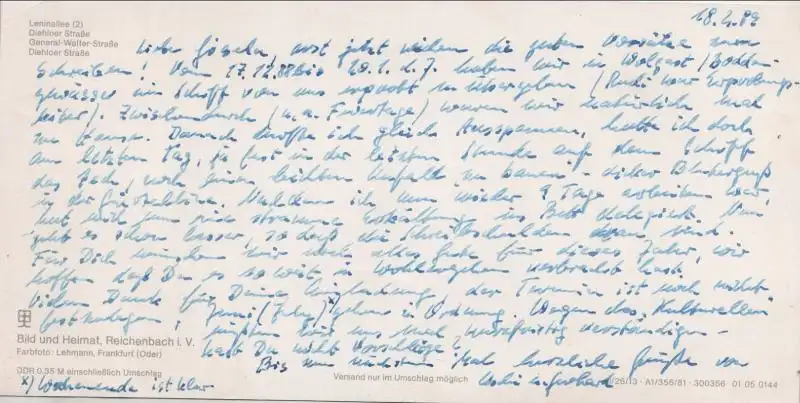 Leninallee (2)
Diehloer Straße
General-Walter-Straße
Diehloer Straße
18.2.89
Liebe Gisela, erst jetzt wirken die guten Vorsätze zum
Schreiben! Vom 17.12.88 bis 20.1. d. J. haben wir in Wolgast / Bodden-
gewässer ein Schiff von uns erprobt u. übergeben (Rudi war Erprobungs-
leiter). Zwischendurch (u. a. Feiertage) waren wir natürlich mal
zu Hause. Danach dürfte ich gleich ausspannen, hatte ich doch
am letzten Tag, ja fast in der letzten Stunde auf dem Schiff
das Pech, noch einen leichten Unfall zu bauen! - dicker Bluterguß
in der Nachdem ich nun wieder 9 Tage arbeiten war,
hat mich nun eine stramme Erkältung ins Bett Nun
geht es schon besser, so daß die Schreibschulden dran sind.
Für Dich wünschen wir noch alles Gute für dieses Jahr, wir
hoffen daß Du es so weit in Wohlergehen verbracht hast.
Vielen Dank für Deine Einladung, der Termin ist noch nicht
festzulegen, Juni (Juli) x) gehen in Ordnung. Wegen des "Kulturellen"
müßten wir uns mal kurzfristig verständigen -
hast Du nicht Vorschläge?
Bis zum nächsten Mal herzliche Grüße von
x) Wochenende ist klar
Bild und Heimat, Reichenbach i. V.
Farbfoto: Lehmann, Frankfurt (Oder)
DDR 0,35 M einschließlich Umschlag
Versand nur im Umschlag möglich
/26/13 · A1/356/81 · 300356 01 05 0144